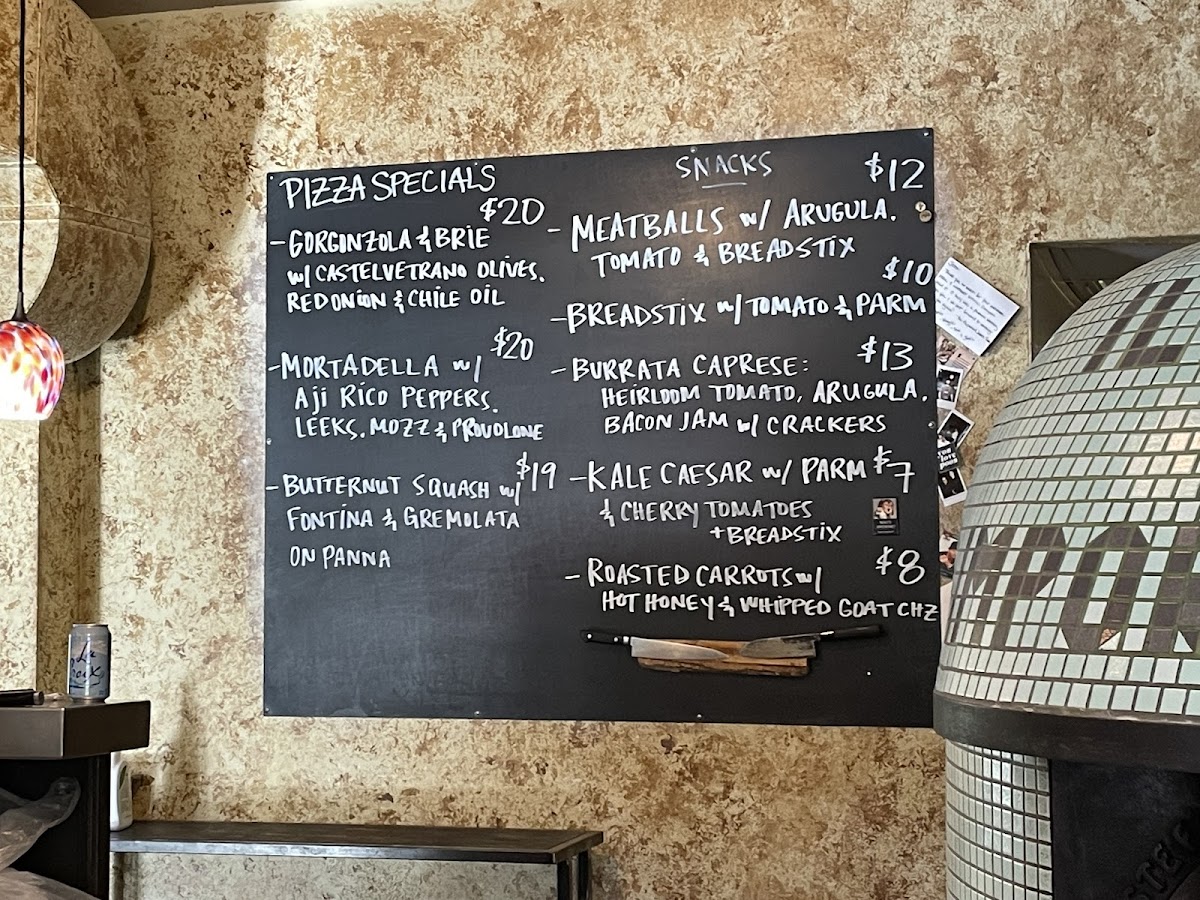 PIZZA SPECIALS
$20
- GORGONZOLA & BRIE
w/ CASTELVETRANO OLIVES.
RED ONION & CHILE OIL
$20
- MORTADELLA w/
AJi RiCO PEPPERS.
LEEKS. MOZZ & PROVOLONE
$19
- BUTTERNUT SQUASH w/
FONTINA & GREMOLATA
ON PANNA
SNACKS
$12
- MEATBALLS w/ ARUGULA.
TOMATO & BREADSTIX
$10
- BREADSTIX w/ TOMATO & PARM
$13
- BURRATA CAPRESE:
HEIRLOOM TOMATO, ARUGULA.
BACON JAM w/ CRACKERS
- KALE CAESAR w/ PARM $7
& CHERRY TOMATOES
+ BREADSTIX
$8
- ROASTED CARROTS w/
HOT HONEY & WHIPPED GOAT CHZ
La
Croix